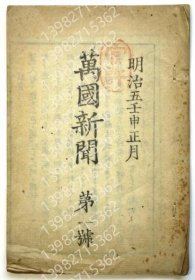 明治五壬申正月
萬國新聞 第一號
13982715362